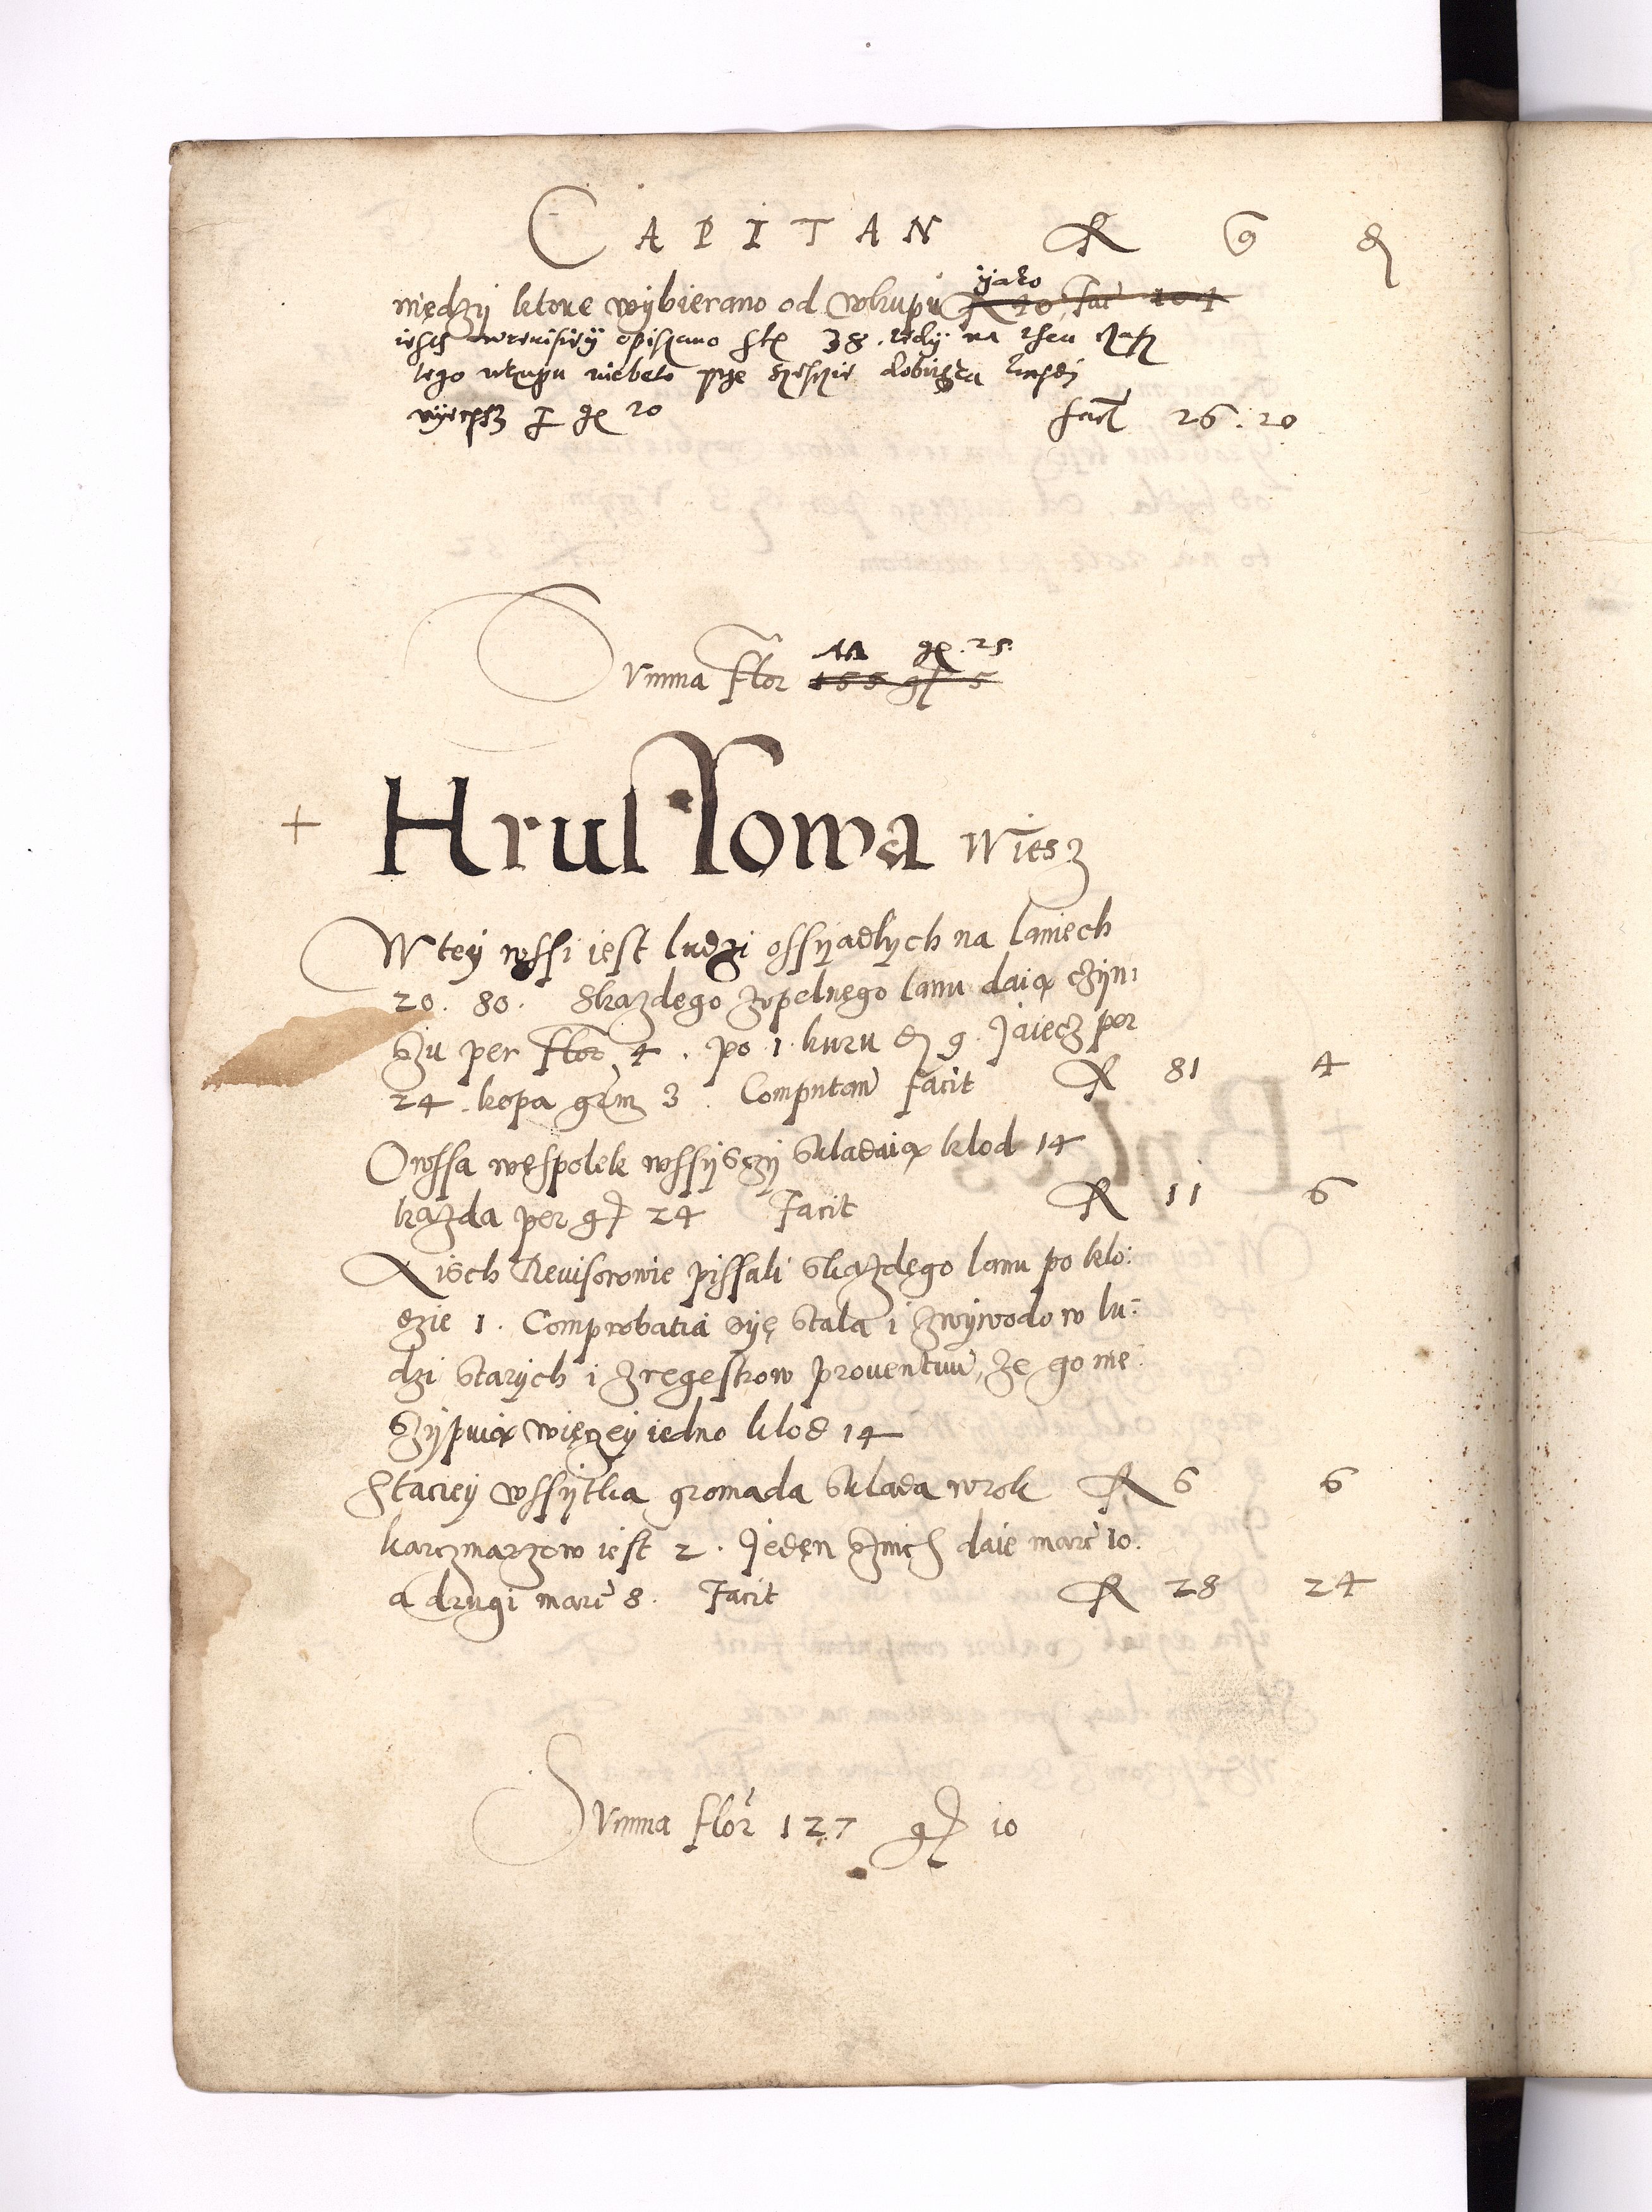 CAPITAN fl g d
niędzÿ ktore wÿbierano od wkupu ijako fl 20 fac 104
iest wrewisiÿ opisano 38. tedÿ na then czasz
tego wkupu niebeło
20 facit 26. 20
Summa flor 155 gr 5 gr. 25.
+ Hrussowa Wies3
W teÿ wssi iest ludzi ossÿadłÿch na laniech
20. 80. Skazdego zvpełnego lanu daią czÿn:
szu per flor 4. po 1. kuru d 9. Jaiecz per
24. kopa grm 3. Computan facit fl 81 4
Owssa wespolek wssÿsczÿ składaią kłod 14
każda per gr 24 Facit fl 11 6
Acisch Reuisorowie pissali skażdego lanu po kło:
dzie 1. Comprobatia sÿę stała i zwÿwodow lu:
dzi starÿch i zregestrow prouentuu, że go nie
szÿpuią więczeÿ iedno kłod 14
Stacieÿ wssÿtka gromada składa wrok fl 6 6
karczmarzow iest 2. Jeden znich daie marc 10.
a drugi marc 8. Facit fl 28 24
Summa flor 127 gr 10